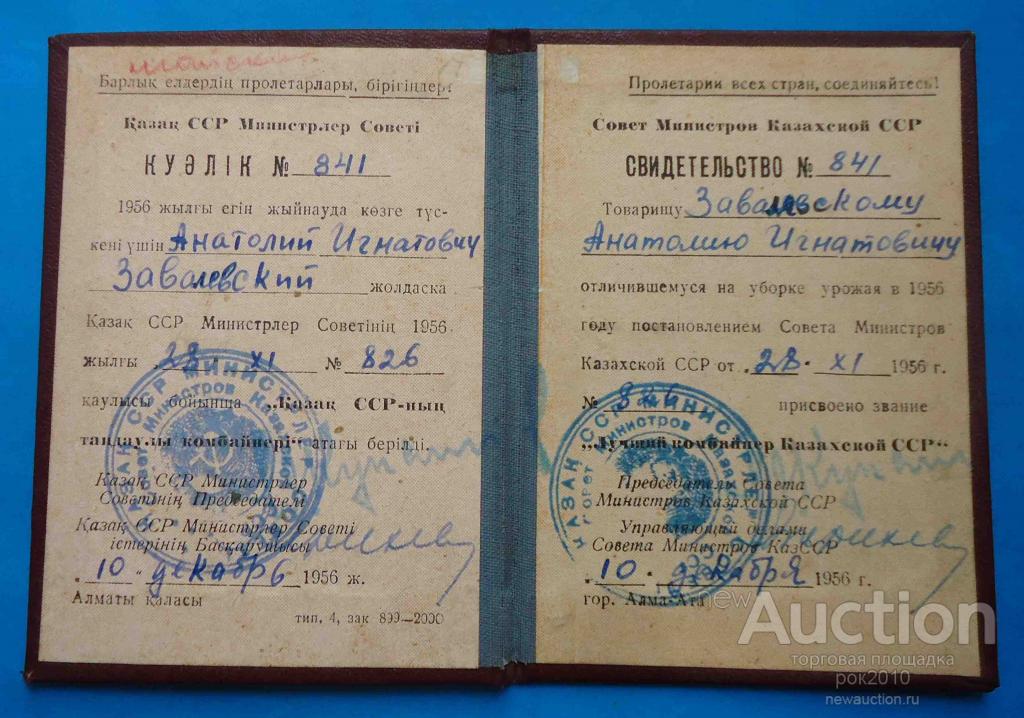 Барлық елдердің пролетарлары, бірігіңдер!
Қазақ ССР Министрлер Советі
КУӘЛІК № 841
1956 жылғы егін жыйнауда көзге түс-
кені үшін Анатолий Игнатовичу
Завалевский жолдаска
Қазақ ССР Министрлер Советінің 1956
жылғы 28. XI № 826
қаулысы бойынша „Қазақ ССР-ның
таңдаулы комбайнері“ атағы берілді.
Қазақ ССР Министрлер
Советінің Председателі
Қазақ ССР Министрлер Советі
істерінің Басқарушысы
10 декабрь 1956 ж.
Алматы қаласы
тип. 4, зак 899—2000
Пролетарии всех стран, соединяйтесь!
Совет Министров Казахской ССР
СВИДЕТЕЛЬСТВО № 841
Товарищу Завалевскому
Анатолию Игнатовичу
отличившемуся на уборке урожая в 1956
году постановлением Совета Министров
Казахской ССР от 28. XI 1956 г.
№ 826 присвоено звание
„Лучший комбайнер Казахской ССР“
Председатель Совета
Министров Казахской ССР
Управляющий делами
Совета Министров КазССР
10 декабря 1956 г.
гор. Алма-Ата
newAuction
торговая площадка
рок2010
newauction.ru